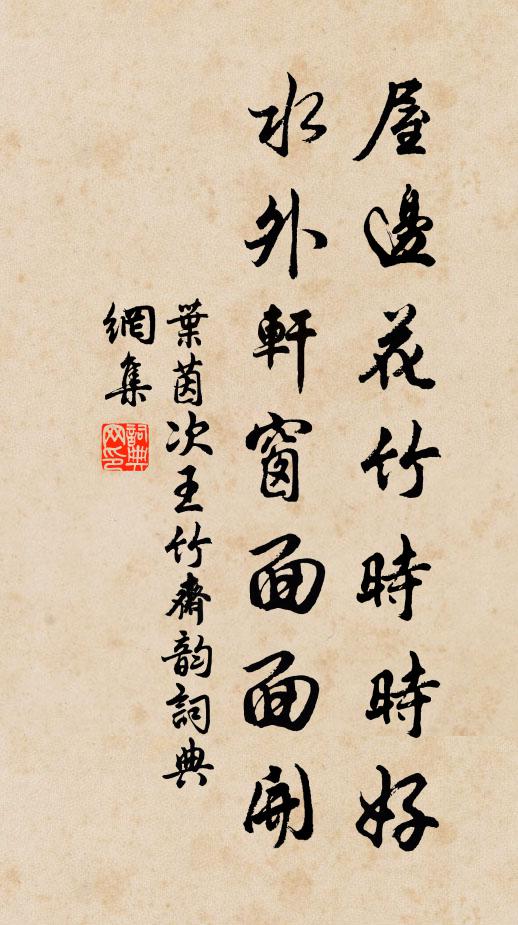 屋邊花竹時時好
水外軒窗面面開
葉茵次王竹齋韵詞典
網集
詞典网印